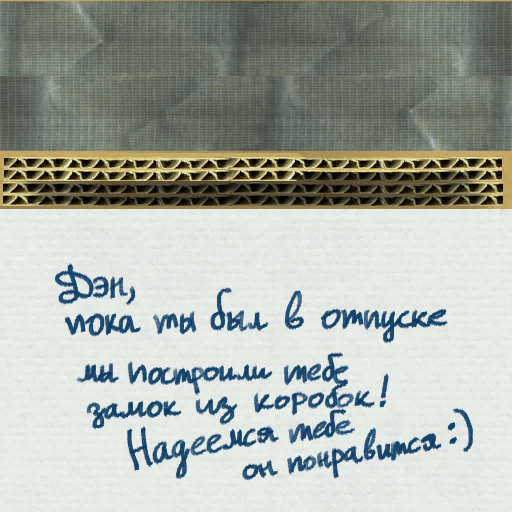 Дэн,
пока ты был в отпуске
мы построили тебе
замок из коробок!
Надеемся тебе
он понравится :)